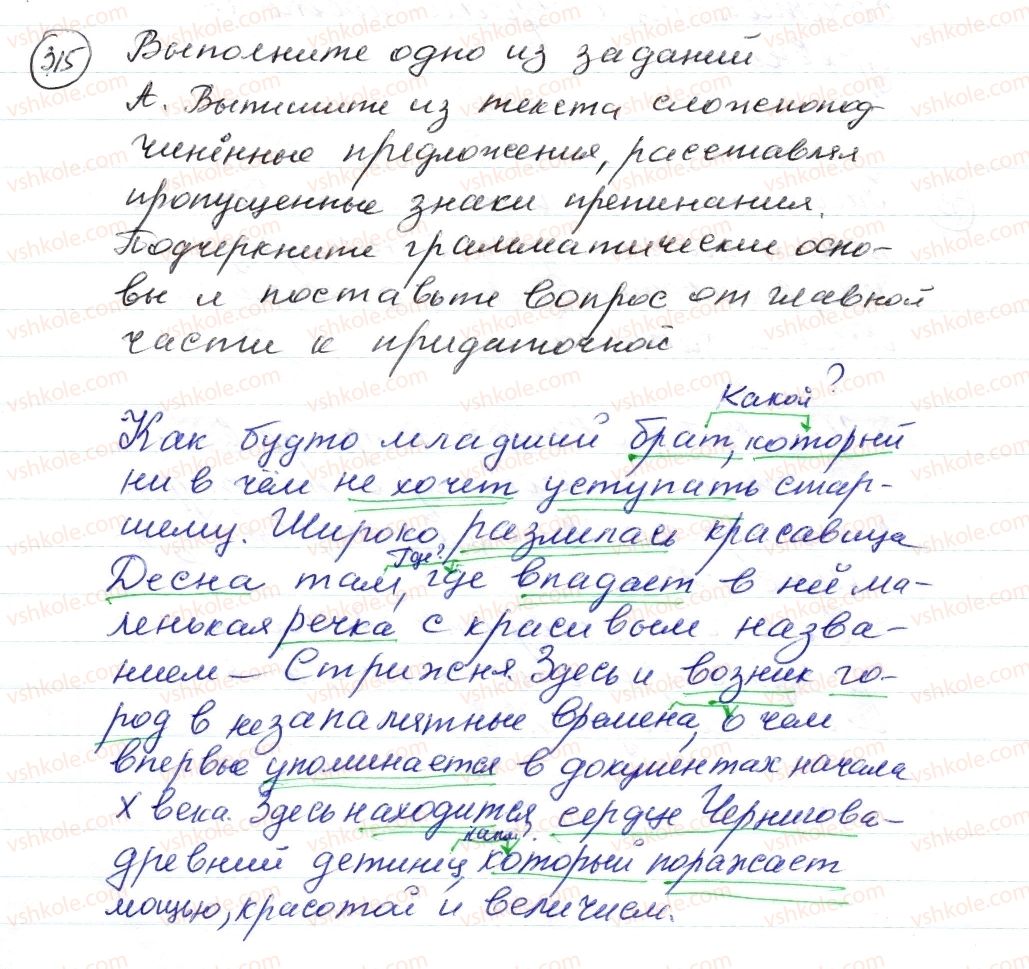 315 Выполните одно из заданий
А. Выпишите из текста сложнопод-
чинённые предложения, расставляя
пропущенные знаки препинания.
Подчеркните грамматические осно-
вы и поставьте вопрос от главной
части к придаточной
Какой?
Как будто младший брат, который
ни в чём не хочет уступать стар-
шему. Широко разлилась красавица
Где?
Десна там, где впадает в неё ма-
ленькая речка с красивым назва-
нием – Стрижня. Здесь и возник го-
род в незапамятные времена, о чём
впервые упоминается в документах начала
X века. Здесь находится сердце Чернигова-
какой?
древний детинец, который поражает
мощью, красотой и величием.